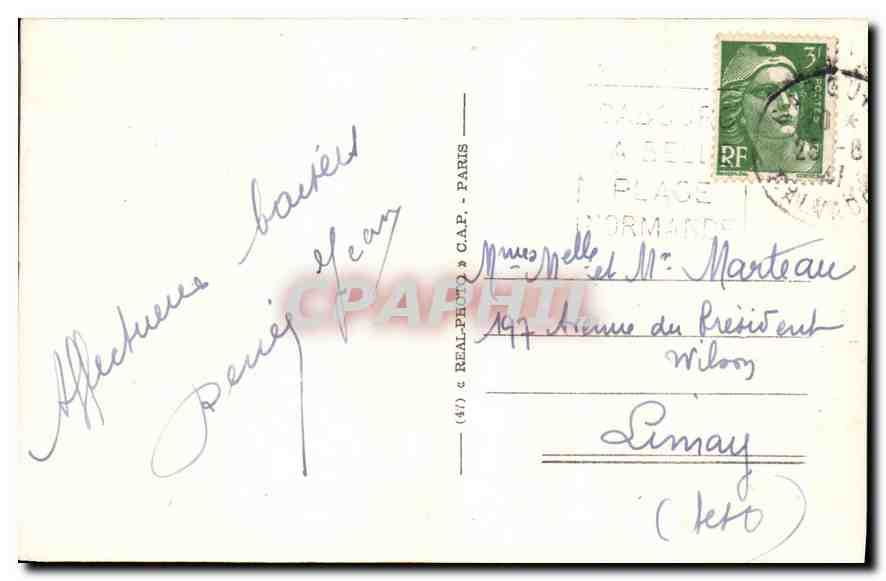 Affectueux baisers
Jean
(47) « REAL-PHOTO » C.A.P. - PARIS
CABOUR
A BELL
PLAGE
NORMANDE
3F
POSTES
RF
CPAPHIL
Mmes Melle et Mr Marteau
197 Avenue du Président
Wilson
Limay
(S et O)